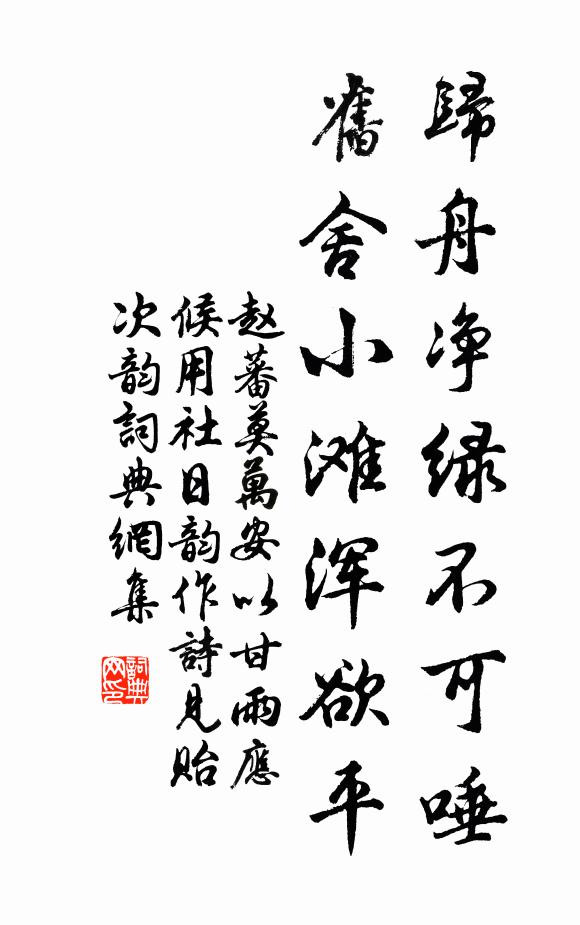 歸舟净緑不可唾
舊舍小滩浑欲平
赵蕃莫萬安以甘雨應
候用社日韵作詩見貽
次韵詞典網集
詞典网印